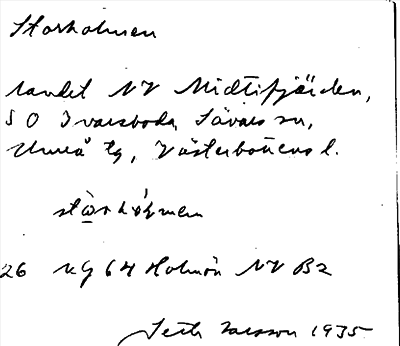 Storholmen
landet NV Midtifjärden,
SO Ivarsboda, Sävars sn,
Umeå tg, Västerbottens l.
stọ̄rhól̥men
26 kg 64 Holmön NV B2
Seth Larsson 1935